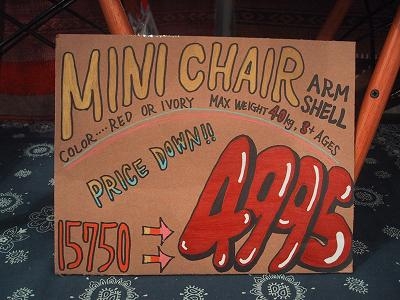 MINI CHAIR
ARM SHELL
COLOR.... RED OR IVORY MAX WEIGHT 40kg, 3+ AGES
PRICE DOWN!!
15750
4995